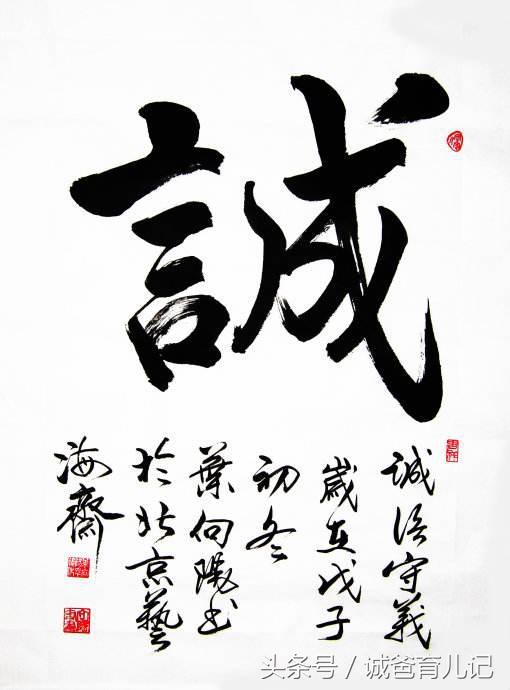 誠
誠信守義
歲在戊子
初冬
葉向陽書
於北京藝
海齋
头条号 / 诚爸育儿记